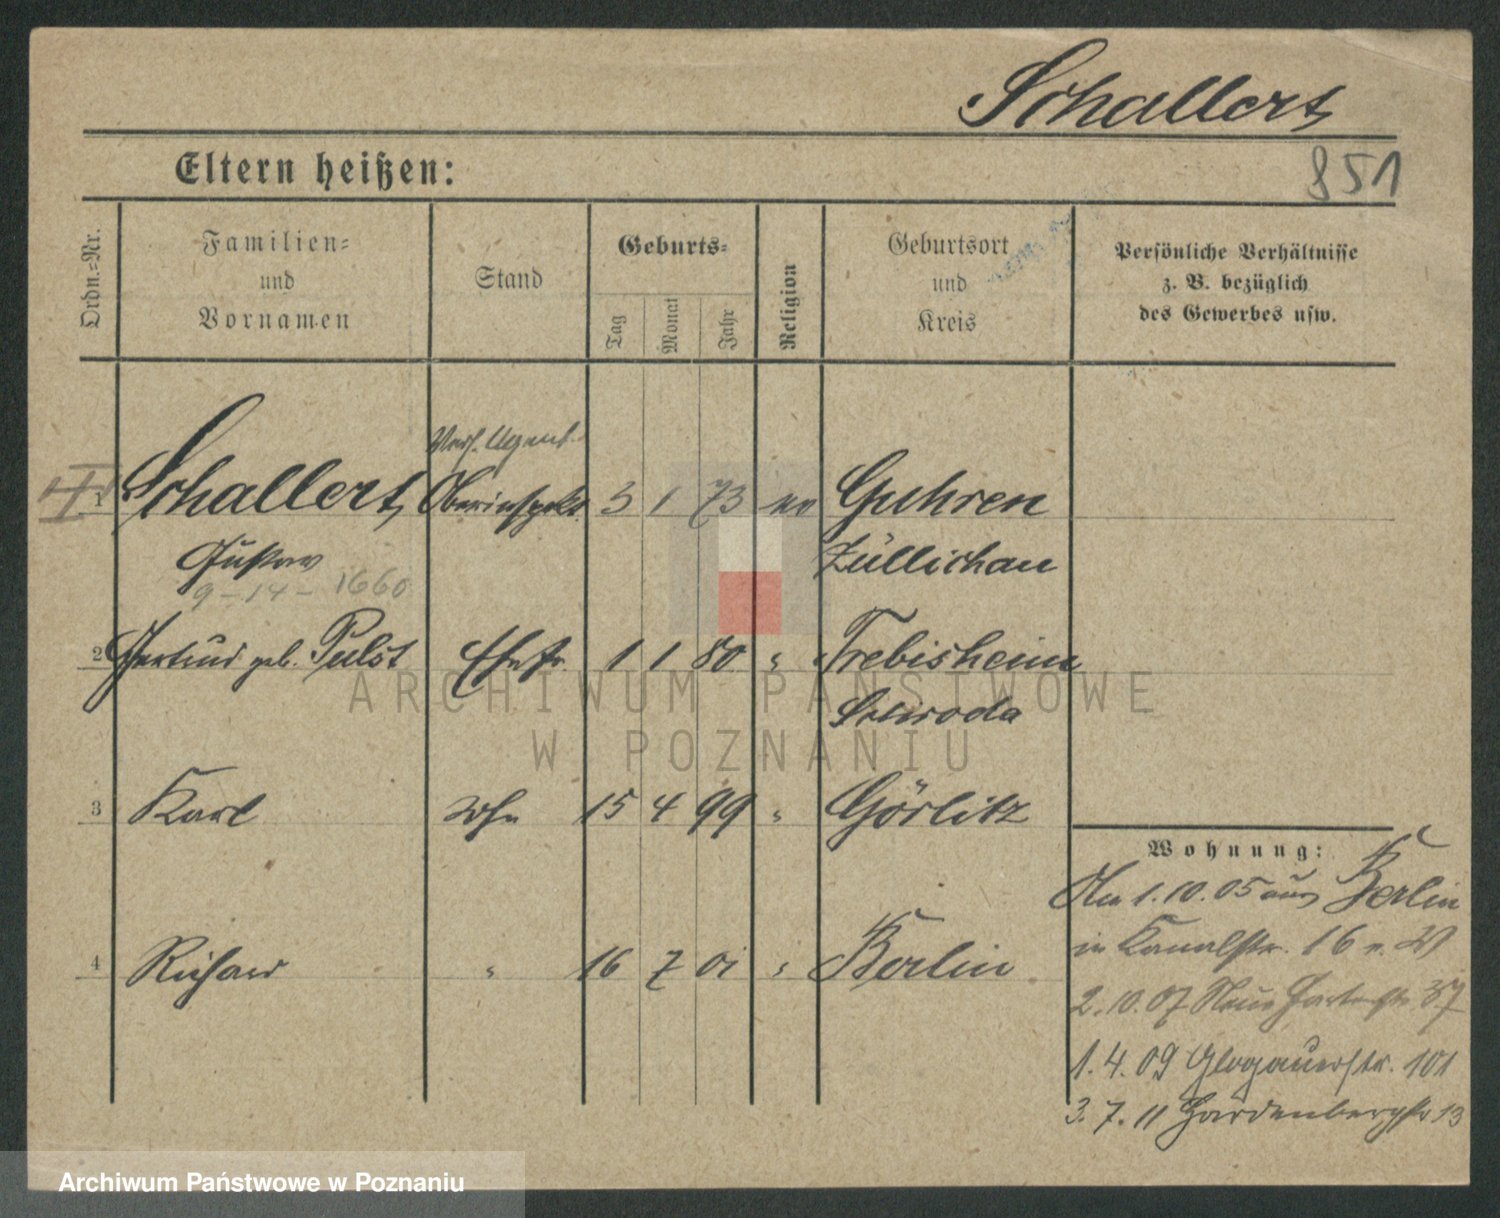 Schallert
Eltern heißen:
851
Ordn.-Nr.
Familien-
und
Vornamen
Stand
Geburts-
Tag
Monat
Jahr
Religion
Geburtsort
und
Kreis
Persönliche Verhältnisse
z. B. bezüglich
des Gewerbes usw.
Vers. Agent
1 Schallert, Oberinspekt. 3 1 73 Guhren
Gustav Züllichau
9-14-1660
2 Gertrud geb. Pulst Ehefr. 1 1 80 " Trebisheim
Schroda
3 Karl Sohn 15 4 99 " Görlitz
4 Richard " 16 7 01 " Berlin
Wohnung:
Am 1.10.05 aus Berlin
in Kanalstr. 16 v. IV
2.10.07 Neue Gartenstr. 37
1.4.09 Glogauerstr. 101
3.7.11 Hardenbergstr 13
ARCHIWUM PAŃSTWOWE
W POZNANIU
Archiwum Państwowe w Poznaniu